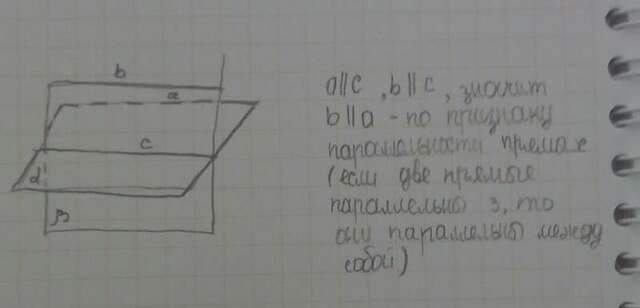 b
a
c
α
β
a||c, b||c, значит
b||a - по признаку
параллельности прямых
(если две прямые
параллельны 3, то
они параллельны между
собой)